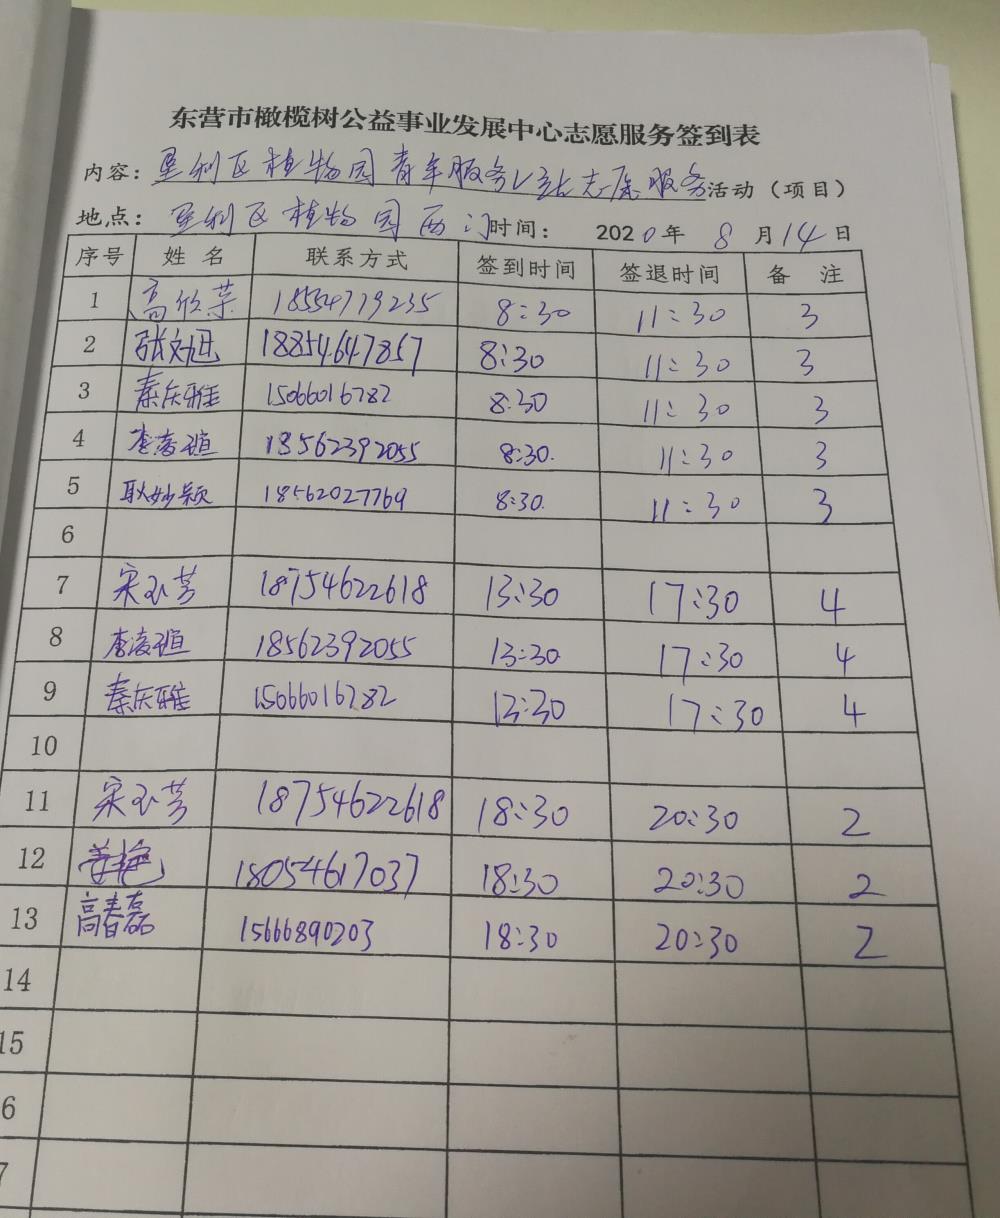 东营市橄榄树公益事业发展中心志愿服务签到表
内容：垦利区植物园青年服务V站志愿服务活动（项目）
地点：垦利区植物园西门 时间：2020年8月14日
序号 姓名 联系方式 签到时间 签退时间 备注
1 高欣荣 18554779235 8:30 11:30 3
2 张文迅 18854647857 8:30 11:30 3
3 秦庆雅 15066016782 8:30 11:30 3
4 李凌瑄 18562392055 8:30. 11:30 3
5 耿妙颖 18562027769 8:30. 11:30 3
6
7 宋玉芳 18754622618 13:30 17:30 4
8 李凌瑄 18562392055 13:30 17:30 4
9 秦庆雅 15066016782 13:30 17:30 4
10
11 宋玉芳 18754622618 18:30 20:30 2
12 姜艳 18054617037 18:30 20:30 2
13 高春磊 15666890203 18:30 20:30 2
14
15
6
7